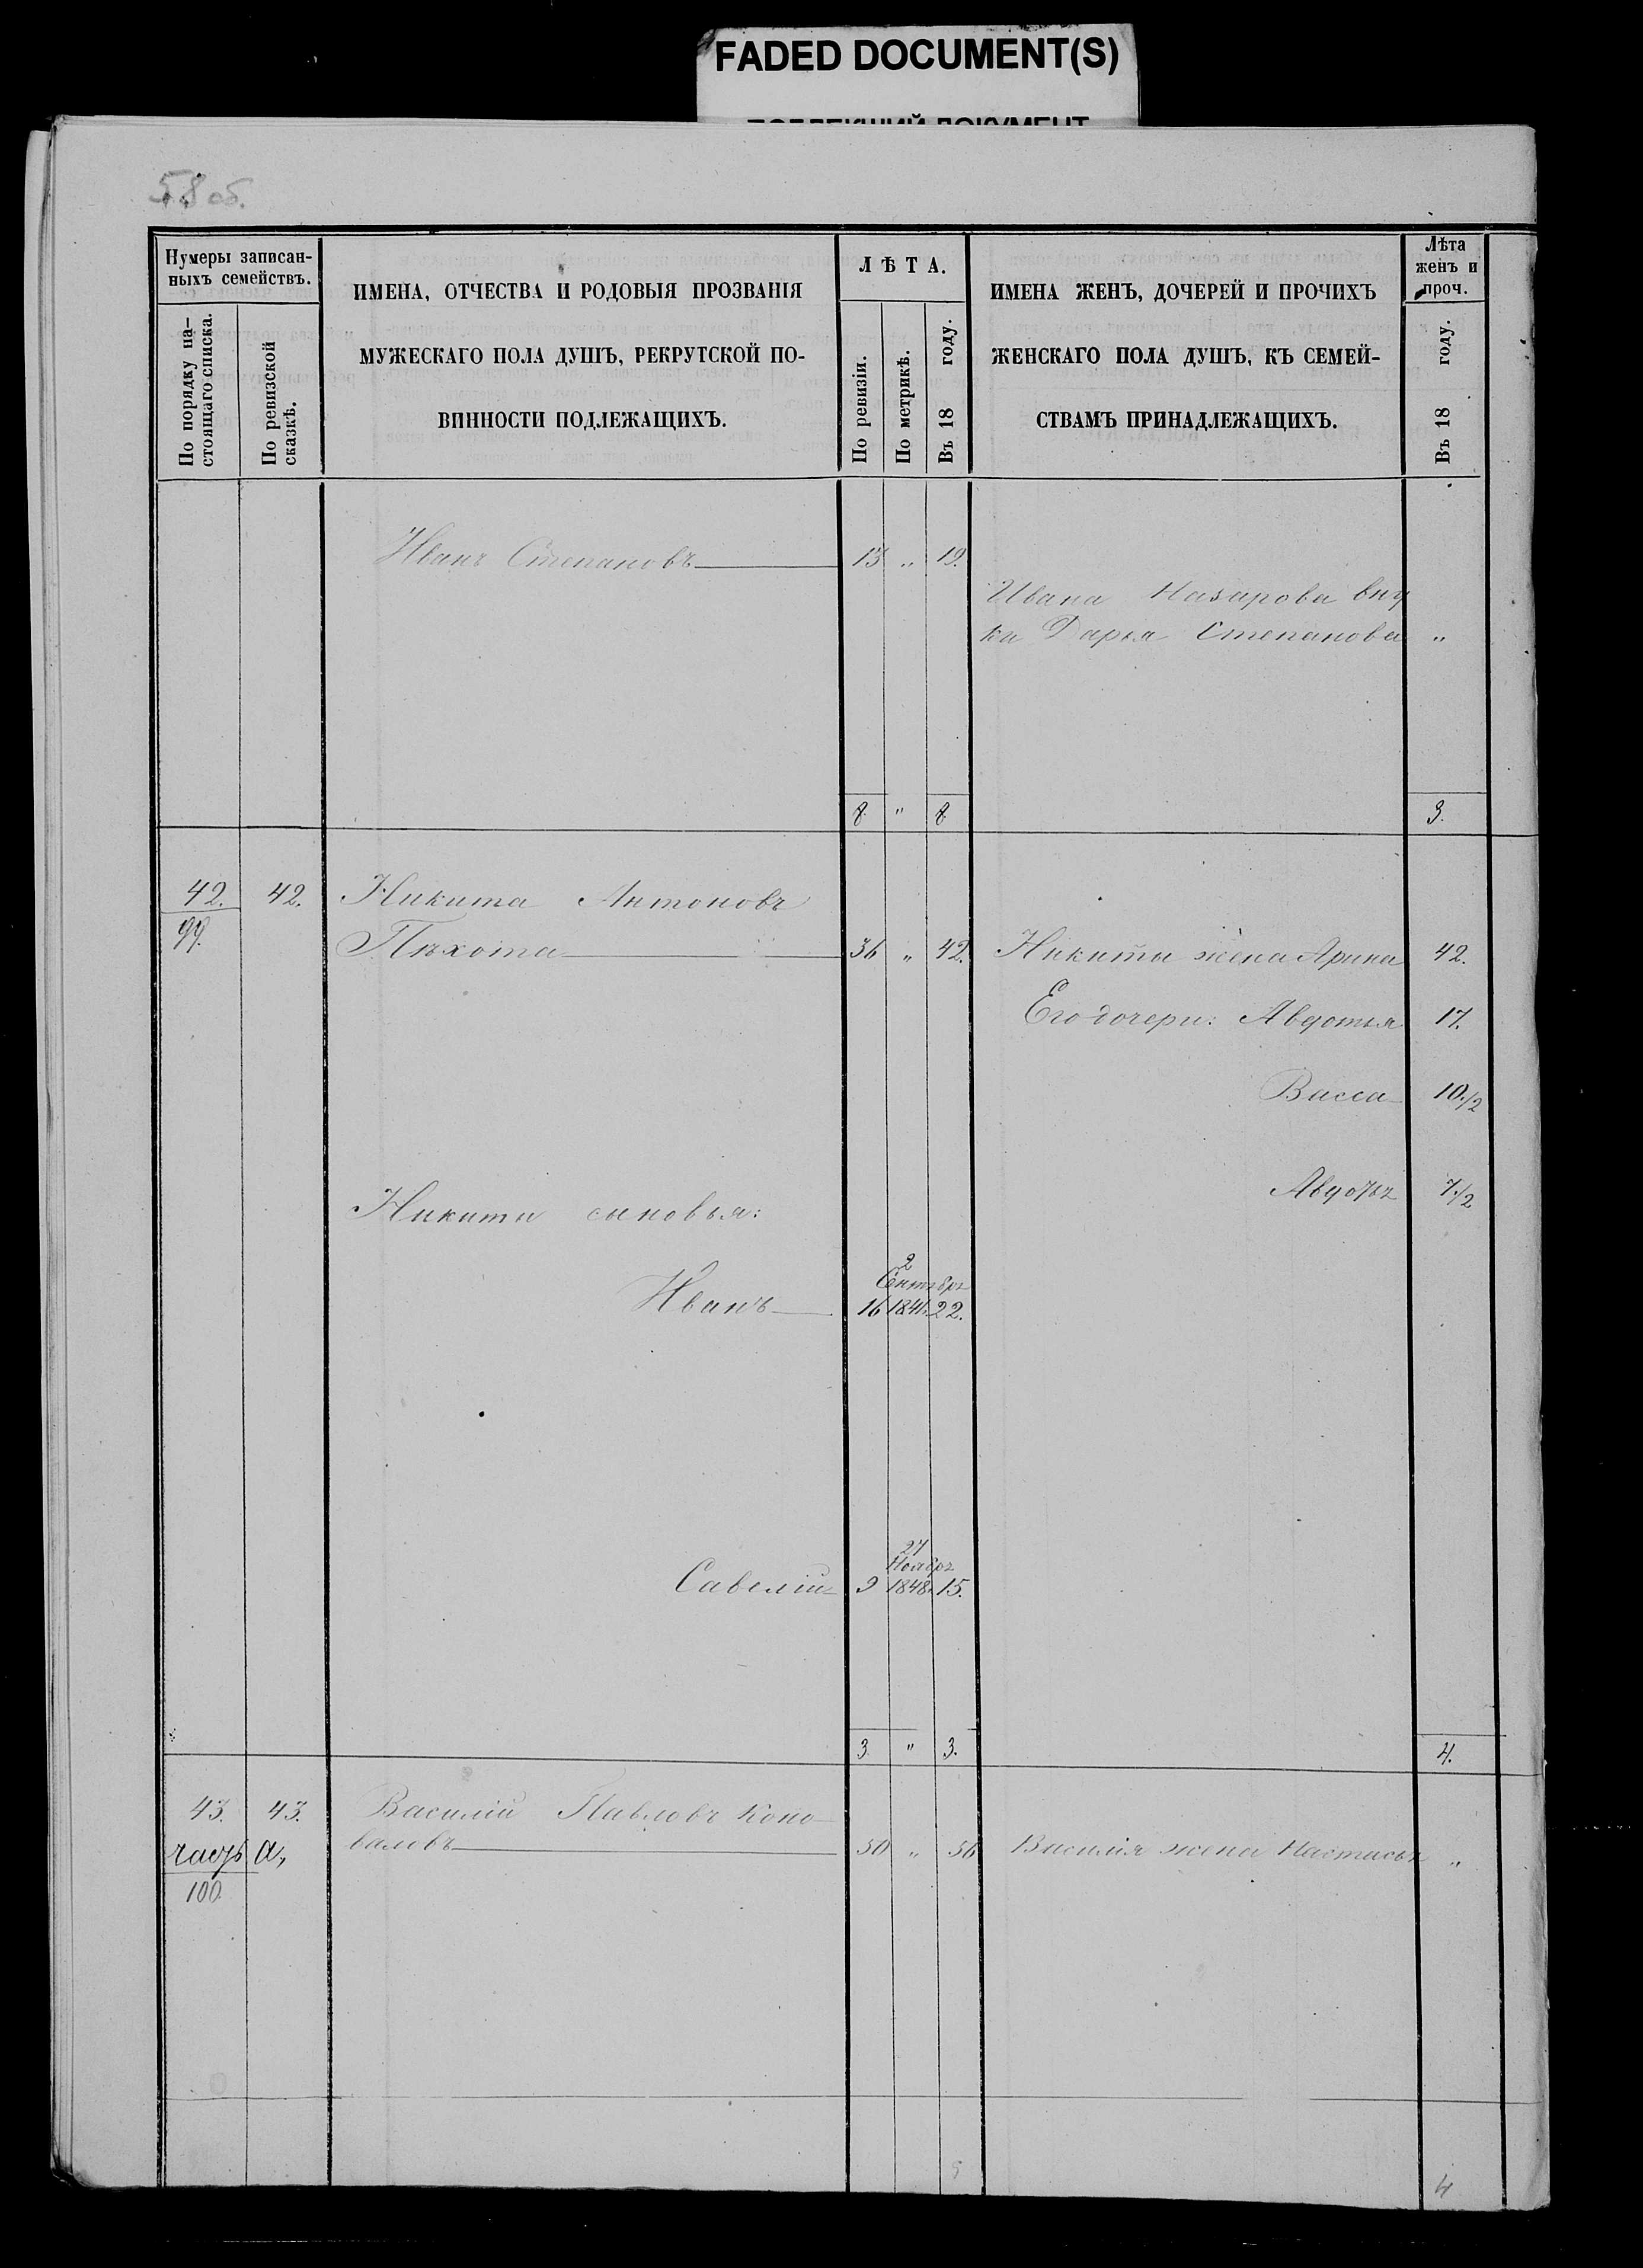 FADED DOCUMENT(S)
58 об.
Нумеры записан-
ныхъ семействъ.
По порядку на-
стоящаго списка.
По ревизской
сказкѣ.
ИМЕНА, ОТЧЕСТВА И РОДОВЫЯ ПРОЗВАНІЯ
МУЖЕСКАГО ПОЛА ДУШЪ, РЕКРУТСКОЙ ПО-
ВИННОСТИ ПОДЛЕЖАЩИХЪ.
ЛѢТА.
По ревизіи.
По метрикѣ.
Въ 18 году.
ИМЕНА ЖЕНЪ, ДОЧЕРЕЙ И ПРОЧИХЪ
ЖЕНСКАГО ПОЛА ДУШЪ, КЪ СЕМЕЙ-
СТВАМЪ ПРИНАДЛЕЖАЩИХЪ.
Лѣта
женъ и
проч.
Въ 18 году.
Иванъ Степановъ 13 „ 19.
Ивана Назарова вну
ка Дарья Степанова „
8. „ 8. 3.
42. 42. Никита Антоновъ
99. Пѣхота 36 „ 42. Никиты жена Арина 42.
Его дочери: Авдотья 17.
Васса 10 1/2
Авдотья 7 1/2
Никиты сыновья:
2
Сентября
Иванъ 16 1841. 22.
27
Ноября
Савелій 9 1848. 15.
3. „ 3. 4.
43. 43. Василій Павловъ Коно-
часть а, валовъ 50 „ 56 Василія жена Настасья „
100.
5 4